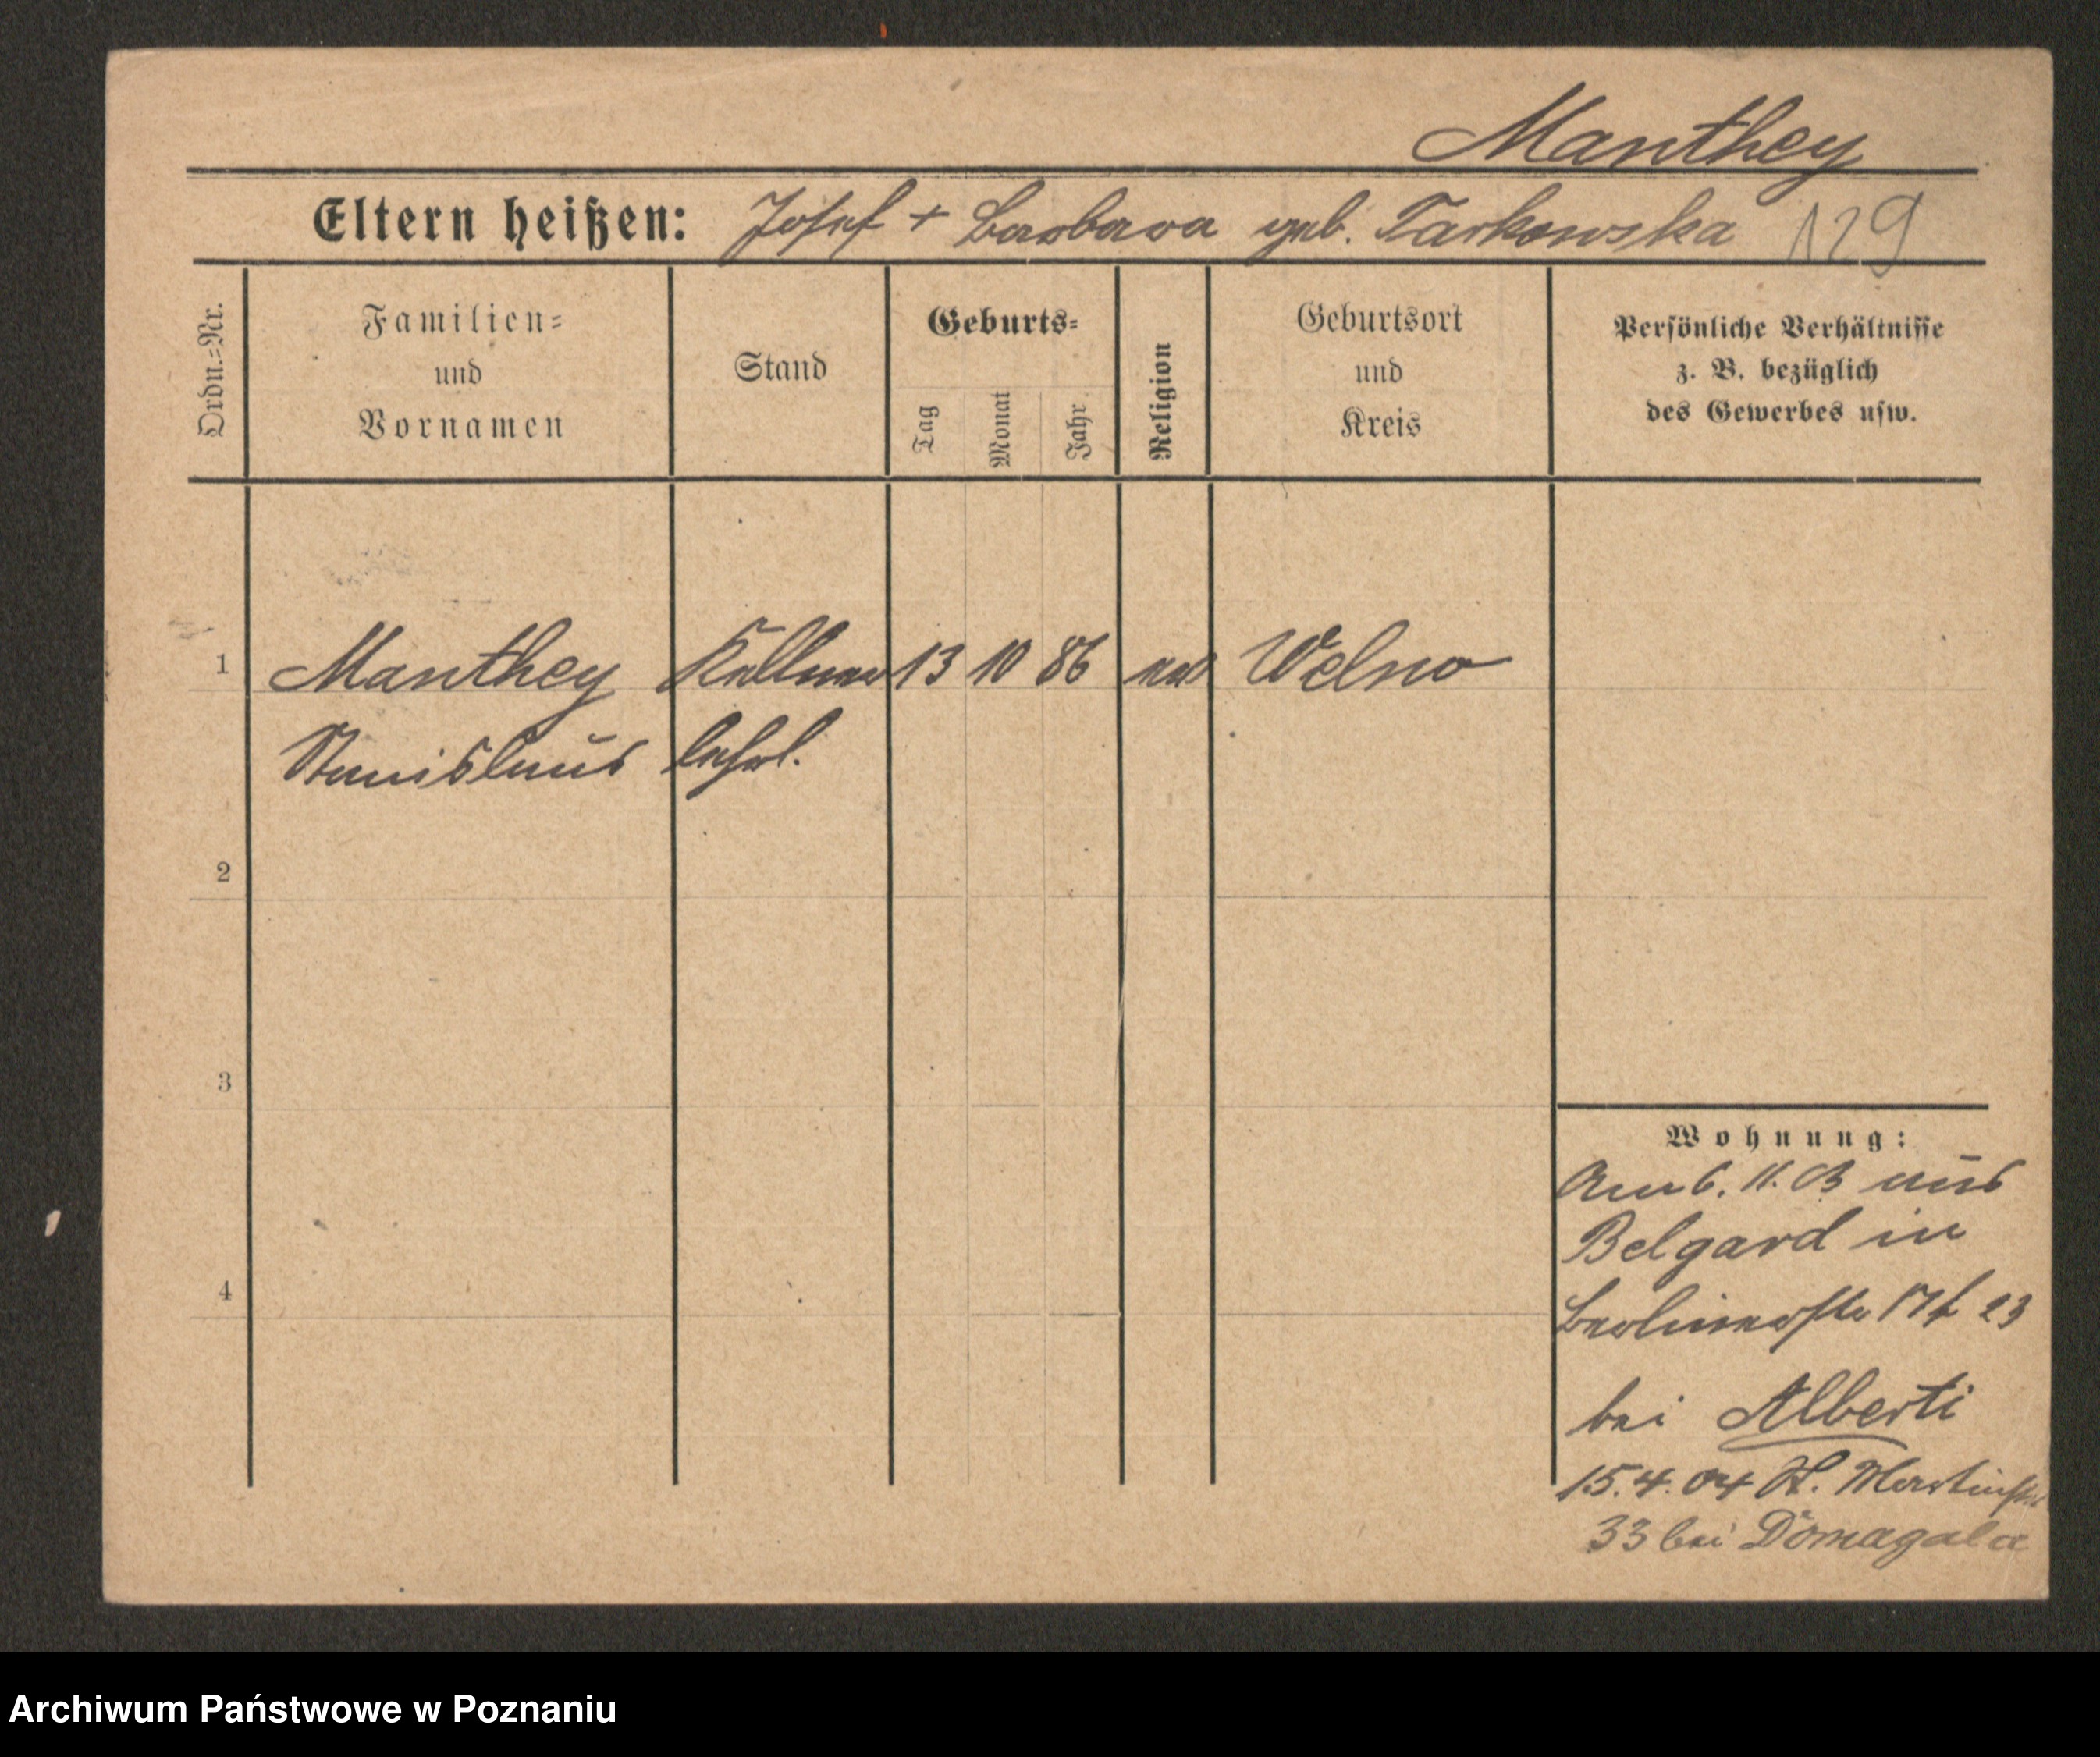 Manthey
Eltern heißen: Josef + Barbara geb. Tarkowska 129
Ordn.=Nr.
Familien=
und
Vornamen
Stand
Geburts=
Tag
Monat
Jahr
Religion
Geburtsort
und
Kreis
Persönliche Verhältnisse
z. B. bezüglich
des Gewerbes usw.
1 Manthey Kellner 13 10 86 kath Welno
Stanislaus lehrl.
2
3
4
Wohnung:
Am 6. 11. 03 aus
Belgard in
Berlinerstr 17 23
bei Alberti
15. 4. 04 St. Martinstr
33 bei Domagala
Archiwum Państwowe w Poznaniu